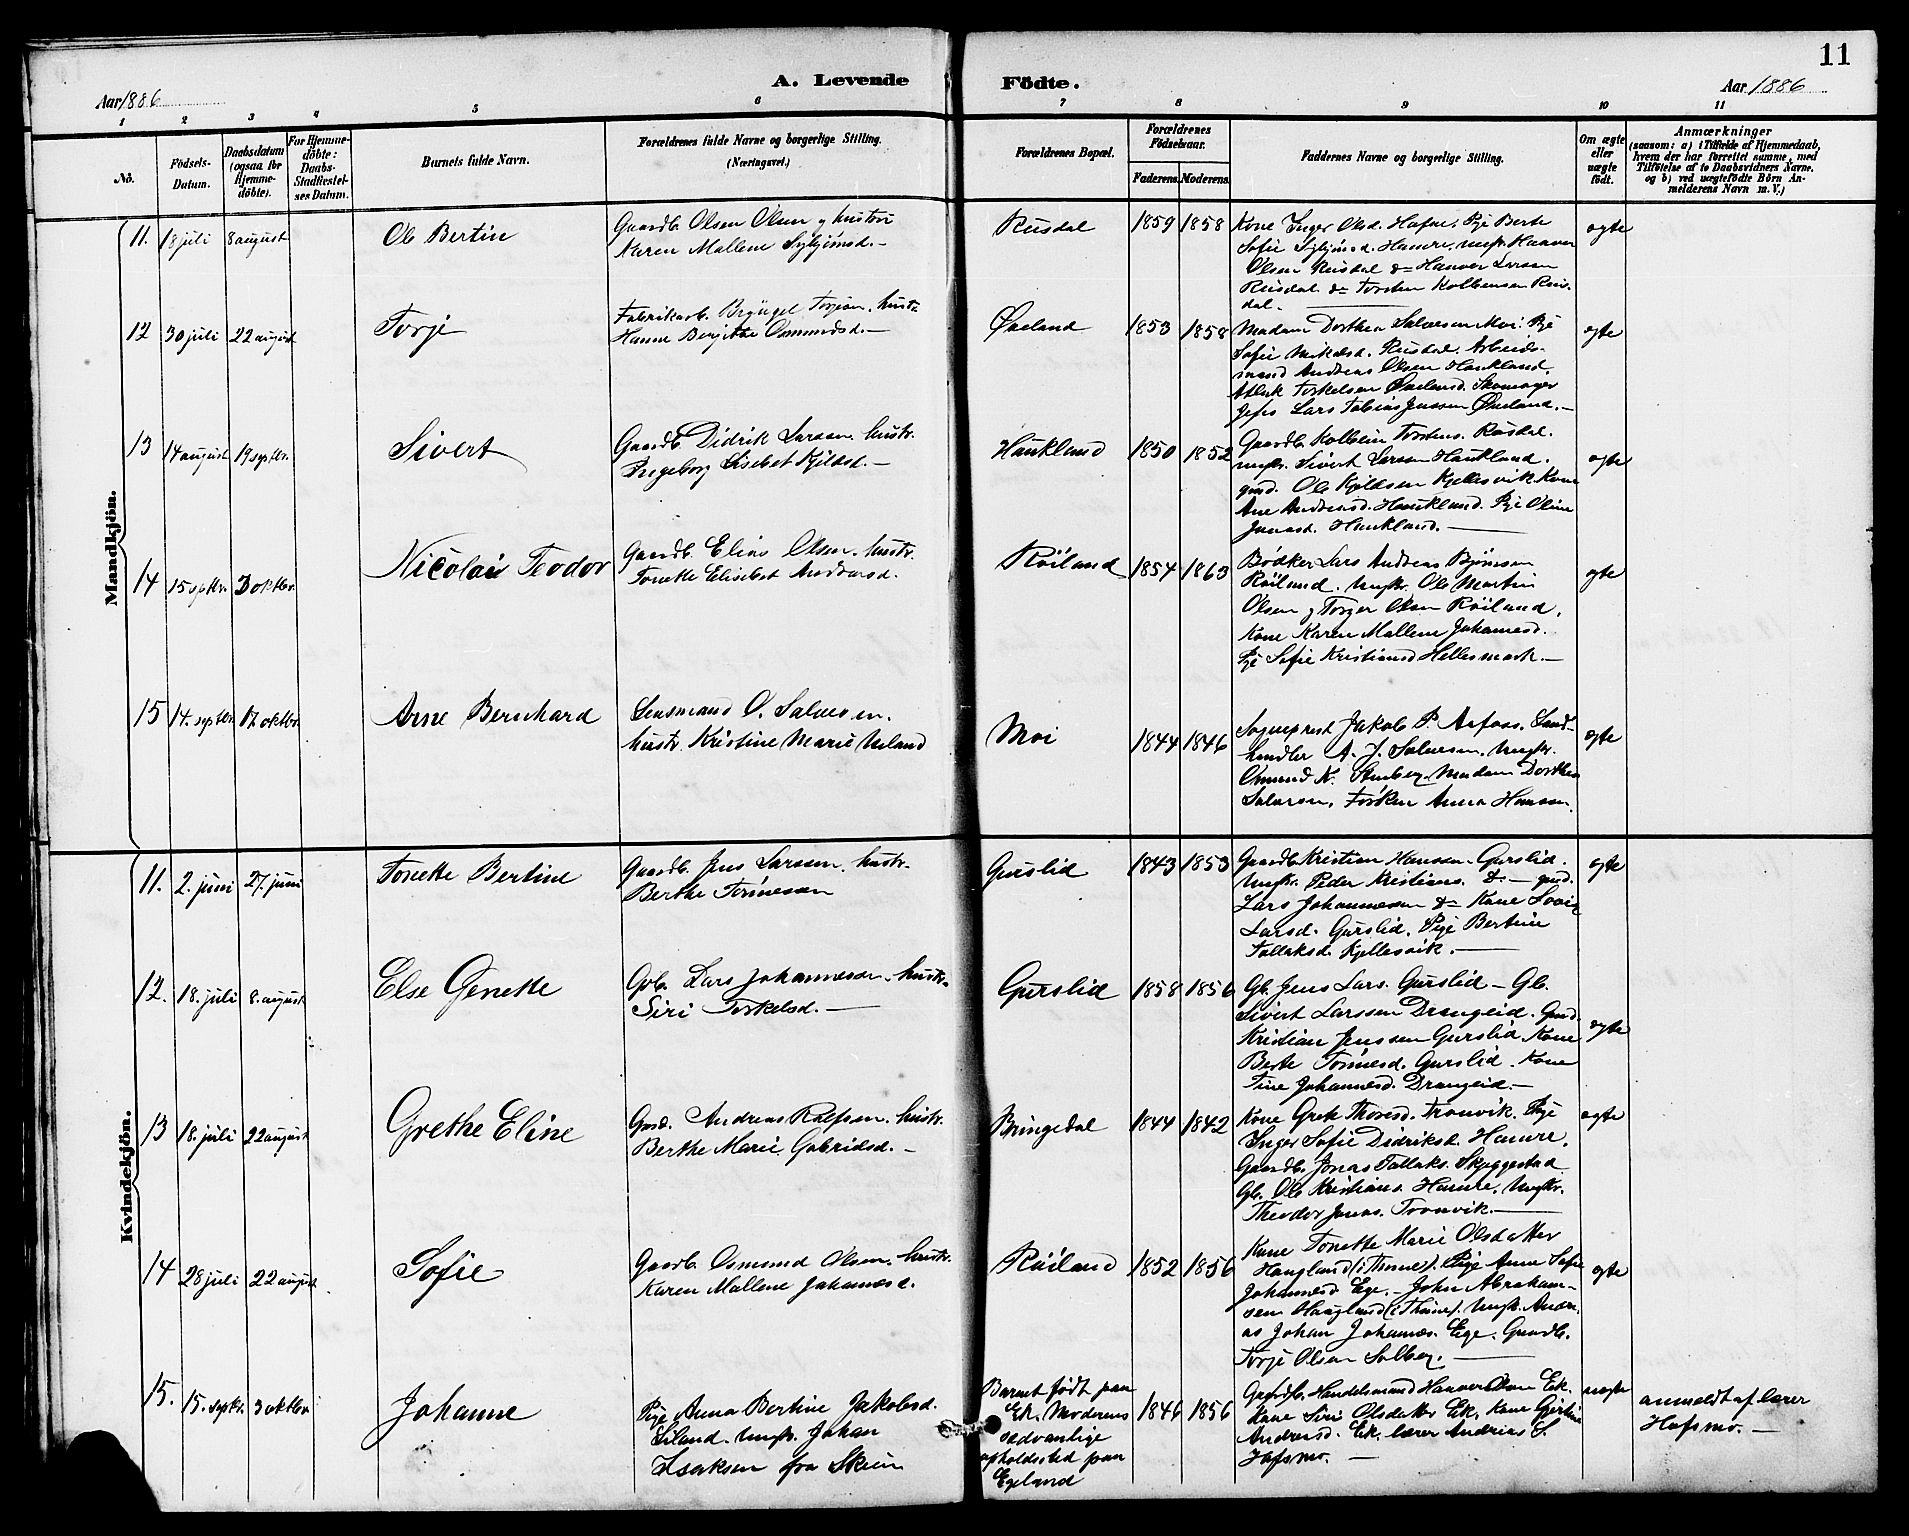 11
A. Levende Födte.
Aar 1886
Aar 1886
1 2 3 4 5 6 7 8 9 10 11
No.
Födsels-
Datum.
Daabsdatum
(ogsaa for
Hjemme-
döbte).
For Hjemme-
döbte:
Daabs-
Stadfæstel-
ses Datum.
Barnets fulde Navn.
Forældrenes fulde Navne og borgerlige Stilling.
(Næringsvei.)
Forældrenes Bopæl.
Forældrenes
Födselsaar.
Faderens. Moderens.
Faddernes Navne og borgerlige Stilling.
Om ægte
eller
uægte
født.
Anmærkninger
(saasom: a) i Tilfælde af Hjemmedaab,
hvem der har forrettet samme, med
Tilföielse af to Daabsvidners Navne,
og b) ved uægtefödte Börn An-
melderens Navn m. V.)
Mandkjön.
11. 18 juli 8 august
Ole Bertin
Gaardb. Olsen Olsen og hustru
Karen Mallene
Rusdal 1859 1858
Kone Inger Olsd. Hafne, Pige Berte
Sofie Hamre, ungk. Haaver
Olsen Rusdal do Haaver Larsen
Rusdal do Torsten Kolbensen Rus-
dal.
ægte
12 30 juli 22 august
Torje
Fabrikarb. hustr.
Hanne Bergitte Osmundsd.
Øveland 1853 1858
Madam Dorthea Salvesen Moi. Pige
Sofie Rusdal. Arbeids-
mand Andreas Olsen Haukland.
Atlak Torkelsen Øveland. Skomager
Lars Tobias Jenssen Øveland.
ægte
13 14 august 19 septbr.
Sivert
Gaardb. Didrik Larssen. hustr.
Ingeborg Lisebet Kjeldsd.
Haukland 1850 1852
Gaardb. Kolbein Torstens. Rusdal.
ungk. Sivert Larsen Haukland.
gmd. Ole Kjeldsen Kjellesvik Kone
Ane Andreasd. Haukland. Pige Oline
Jonasd. Haukland.
ægte
14 15 septbr. 3 oktbr.
Nicolai Teodor
Gaardb. Elias Olsen. hustr.
Tonette Elisebet Andreasd.
Røiland 1854 1863
Bødker Lars Andreas Bjørnsen
Røiland. Ungk. Ole Martin
Olsen og Torger Olsen Røiland,
Kone Karen Mallene Johannesd.
Pige Sofie Kristiansd Hellesmark.
ægte
15 14. septbr. 17 oktbr.
Arne Bernhard
Lensmand O. Salvesen.
hustr. Kristine Marie Ueland
Moi 1844 1846
Sogneprest Jakob P. Aafoss. Land-
handler A. J. Salvesen. Ungkr.
Osmund K. Stenberg. Madam Dorthea
Salvesen. Frøken Anna Hansen.
ægte
Kvindekjön.
11. 2. juni 27. juni
Tonette Bertine
Gaardb. Jens Larssen. hustr.
Berthe
Gurslid 1843 1853
Gaardb. Kristian Hanssen Gurslid.
Ungkr. Peder Kristians. do. gmd.
Lars Johannessen do Kone
Larsd. Gurslid. Pige Bertine
Tollaksd. Kjellesvik.
ægte
12. 18. juli 8. august
Else Genette
Gb. Lars Johannessen. hustr.
Siri Torkelsd.
Gurslid 1858 1856
Gb. Jens Lars. Gurslid - Gb.
Sivert Larssen Drangeid. Gmd.
Kristian Jenssen Gurslid. Kone
Berte Gurslid. Kone
Tine Johannesd. Drangeid.
ægte
13 18. juli 22 august
Grethe Eline
Gmd. Andreas hustr.
Berthe Marie Gabrielsd.
Bringedal 1844 1842
Kone Grete Thoresd. Tronvik. Pige
Inger Sofie Didriksd. Hamre.
Gaardb. Jonas Tollaks. Skjeggestad
Gb. Ole Kristians. Hamre. Ungkr.
Theodor Jonas. Tronvik.
ægte
14 28 juli 22 august
Sofie
Gaardb. Osmund Olsen. hustr.
Karen Mallene Johannesd.
Røiland 1852 1856
Kone Tonette Marie Olsdatter
Haugland (i Thime). Pige Anne Sofie
Johannesd. Ege. - John Abraham-
sen Haugland (Thime). Ungk. Andre-
as Johan Johannes. Ege. Gaardb.
Torje Olsen Solberg.
ægte
15. 15. septbr. 3 oktbr.
Johanne
Pige Anna Bertine Jakobsd.
Eiland. Ungkr. Johan
Isaksen fra Skien
Barnet født paa
Ek. Moderens
sædvanlige
opholdssted paa
Egeland
1846 1856
Handelsmand Haaver Olsen Ek.
Kone Siri Olsdatter Ek. Kone
Andreasd. Ek. lærer Andreas S.
Hafsmo.
uægte
anmeldt af lærer
Hafsmo.